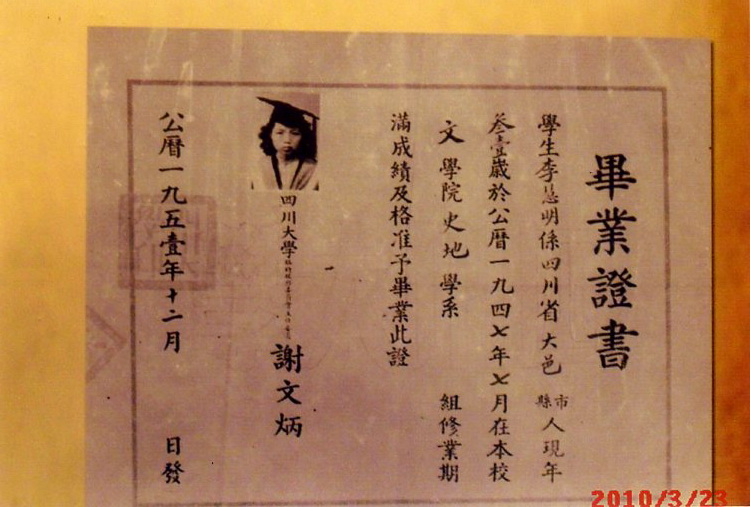 畢業證書
學生李慧明係四川省大邑市縣人現年
叁壹歲於公曆一九四七年七月在本校
文學院史地學系 組修業期
滿成績及格准予畢業此證
四川大學
謝文炳
公曆一九五壹年十二月 日發
2010/3/23